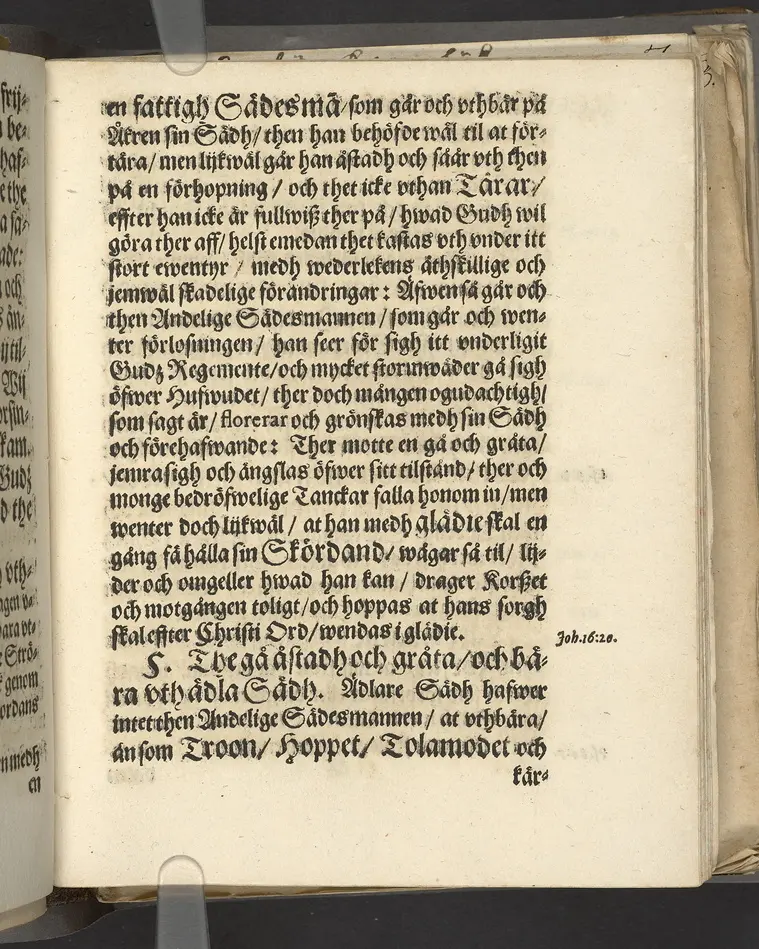 en fattigh Sädesmā/som går och vthbär på
Åkren sin Sädh/then han behöfde wäl til at för-
tära/men lijkwäl går han åstadh och såår vth then
på en förhopning/och thet icke vthan Tårar/
effter han icke är fullwiß ther på/hwad Gudh wil
göra ther aff/helst emedan thet kastas vth vnder itt
stort ewentyr/medh wederlekens åthskillige och
jemwäl skadelige förändringar: Äfwen så går och
then Andelige Sädesmannen/som går och wen-
ter förlosningen/han seer för sigh itt vnderligit
Gudz Regemente/och mycket stormwäder gå sigh
öfwer Hufwudet/ther doch mången ogudachtigh/
som sagt är/florerar och grönskas medh sin Sädh
och förehafwande: Ther motte en gå och gråta/
jemra sigh och ängslas öfwer sitt tilstånd/ther och
monge bedröfwelige Tanckar falla honom in/men
wenter doch lijkwäl/at han medh glädie skal en
gång få hålla sin Skördand/wågar så til/lij-
der och omgeller hwad han kan/drager Korßet
och motgången toligt/och hoppas at hans sorgh
skal effter Christi Ord/wendas i glädie.
Joh.16:20.
5. The gå åstadh och gråta/och bä-
ra vth ädla Sädh. Ädlare Sädh hafwer
intet then Andelige Sädesmannen/at vthbära/
än som Troon/Hoppet/Tolamodet och
kär-